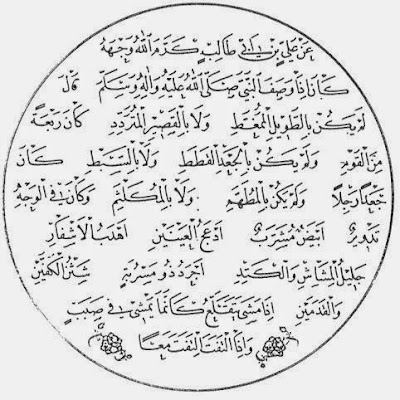 عَنْ عَلِيِّ بْنِ أَبِي طَالِبٍ كَرَّمَ اللهُ وَجْهَهُ
كَانَ إِذَا وَصَفَ النَّبِيَّ صَلَّى اللهُ عَلَيْهِ وَاٰلِهِ وَسَلَّمَ قَالَ
لَمْ يَكُنْ بِالطَّوِيلِ الْمُمَّغِطِ وَلَا بِالْقَصِيرِ الْمُتَرَدِّدِ كَانَ رَبْعَةً
مِنَ الْقَوْمِ وَلَمْ يَكُنْ بِالْجَعْدِ الْقَطَطِ وَلَا بِالسَّبِطِ كَانَ
جَعْدًا رَجِلًا وَلَمْ يَكُنْ بِالْمُطَهَّمِ وَلَا بِالْمُكَلْثَمِ وَكَانَ فِي الْوَجْهِ
تَدْوِيرٌ أَبْيَضُ مُشْرَبٌ أَدْعَجُ الْعَيْنَيْنِ أَهْدَبُ الْأَشْفَارِ
جَلِيلُ الْمُشَاشِ وَالْكَتَدِ أَجْرَدُ ذُو مَسْرُبَةٍ شَثْنُ الْكَفَّيْنِ
وَالْقَدَمَيْنِ إِذَا مَشَى يَتَقَلَّعُ كَأَنَّمَا يَمْشِي فِي صَبَبٍ
وَإِذَا الْتَفَتَ الْتَفَتَ مَعًا